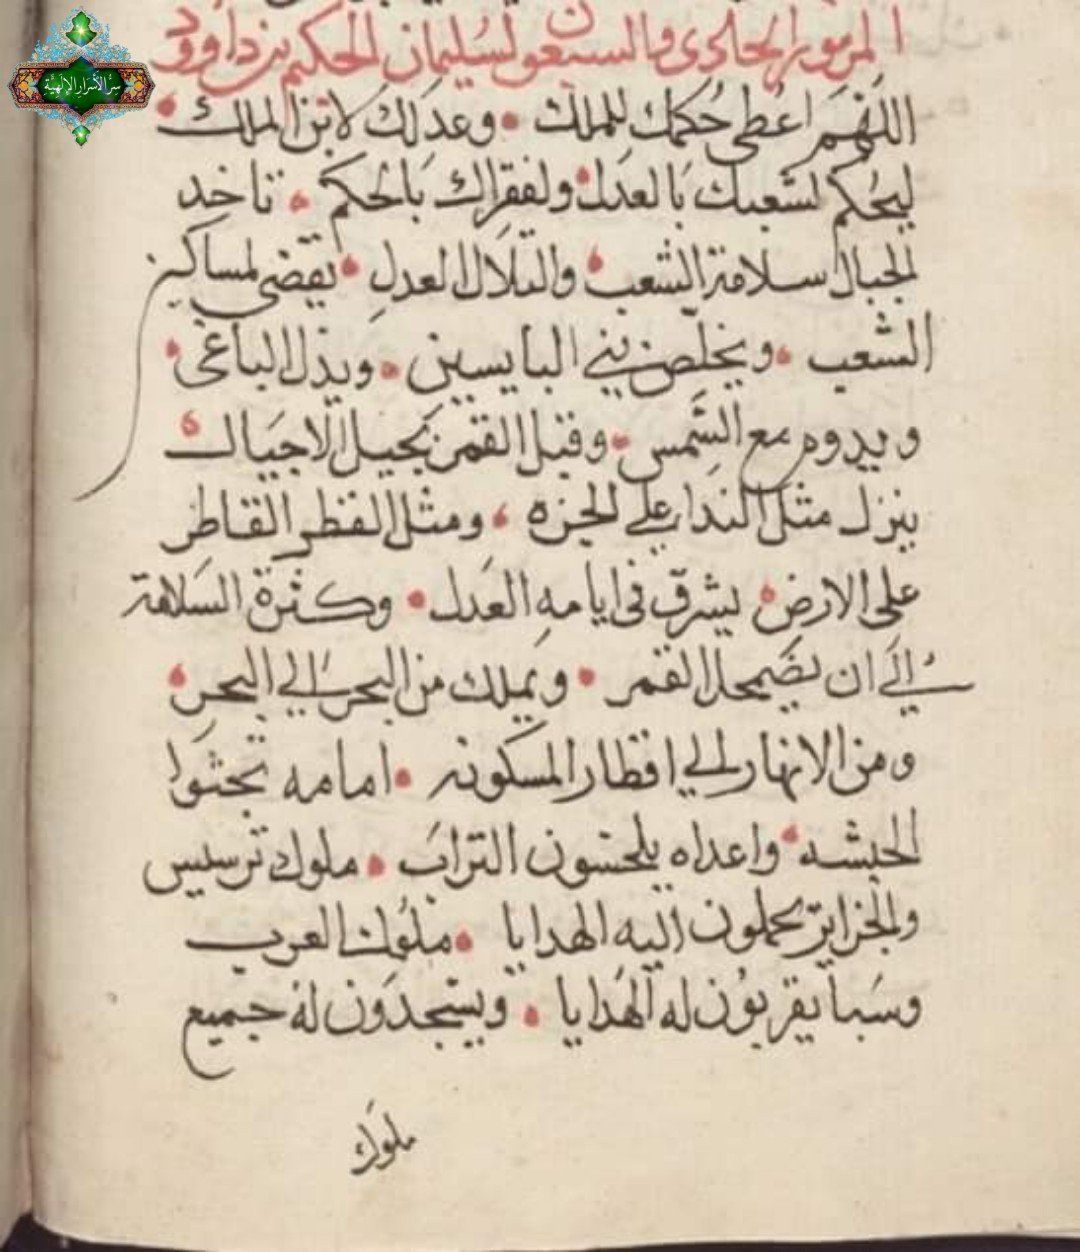 سر الأسرار الإلهية
المزمور الحادي والسبعون لسليمان الحكيم بن داوود
اللهم اعطي حُكمك للملك • وعدلك لابن الملك •
ليحكم لشعبك بالعدل • ولفقراك بالحكم • تاخد
الجبال سلامة الشعب • والتلال العدل • يقضي لمساكين
الشعب • ويخلص بني البايسين • ويذل الباغي •
ويدوم مع الشمس • وقبل القمر بجيل الاجيال •
ينزل مثل الندا علي الجزه • ومثل القطر القاطر
على الارض • يشرق في ايامه العدل • وكثرة السلامة
إلي ان يضمحل القمر • ويملك من البحر الي البحر •
ومن الانهار الي اقطار المسكونه • امامه تجثوا
الحبشه • واعداه يلحسون التراب • ملوك ترسيس
والجزاير يحملون اليه الهدايا • ملوك العرب
وسبا يقربون له الهدايا • ويسجدون له جميع
ملوك